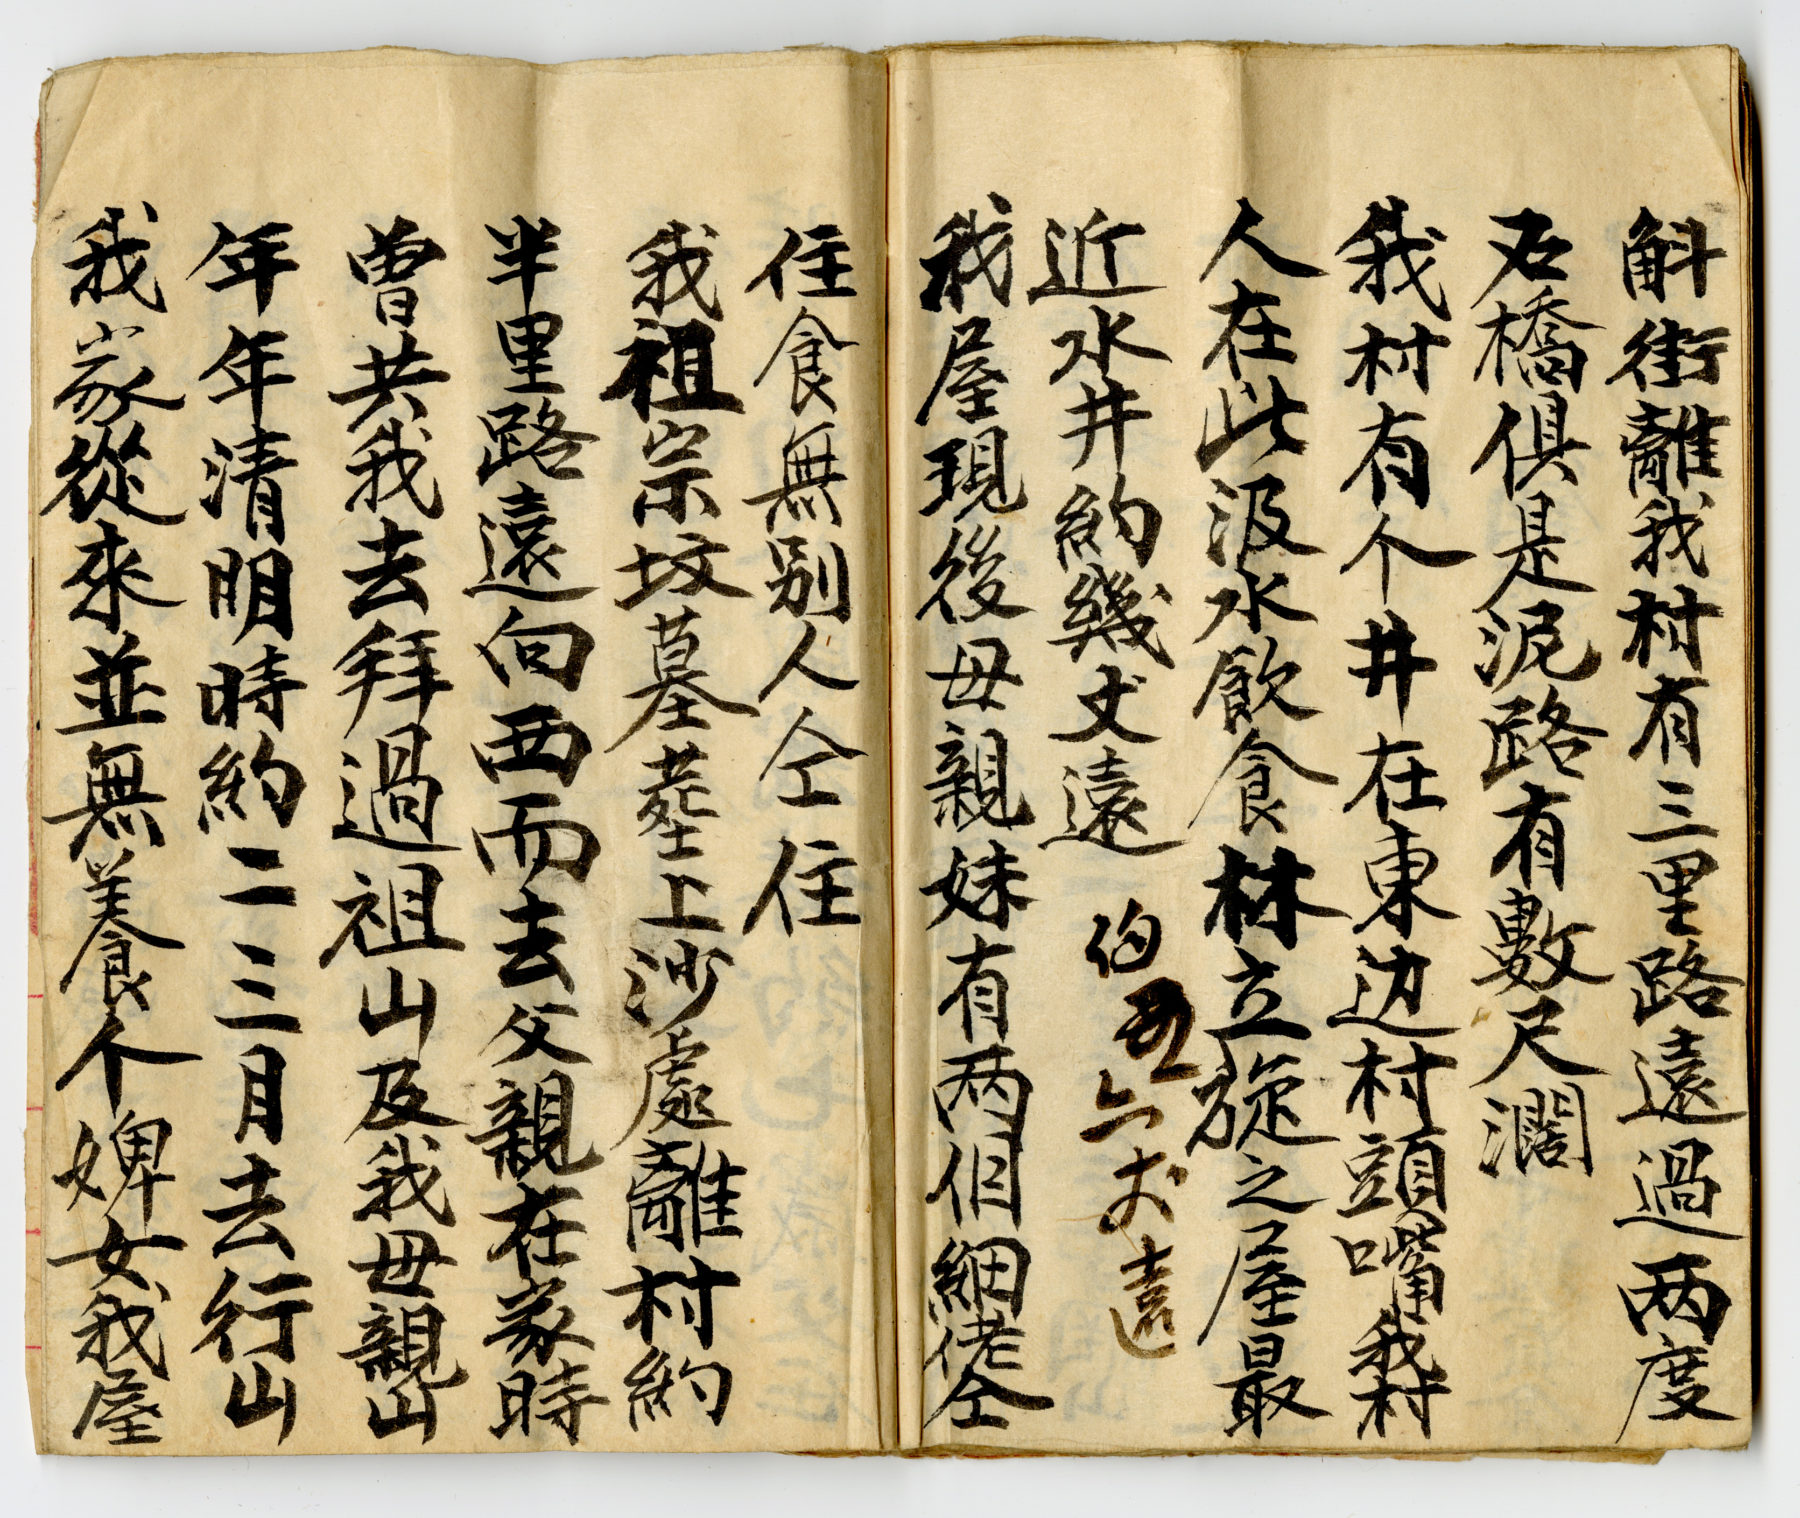 斛街離我村有三里路遠過两度
石橋俱是泥路有數尺濶
我村有个井在東边村頭嘴我村
人在此汲水飲食林立旋之屋最
近水井約幾丈遠 約五六丈遠
我屋現後母親妹有两個細佬仝
住食無别人仝住
我祖宗坟墓塟上沙處離村約
半里路遠向西而去父親在家時
曾共我去拜過祖山及我母親山
年年清明時約二三月去行山
我家從來並無养个婢女我屋